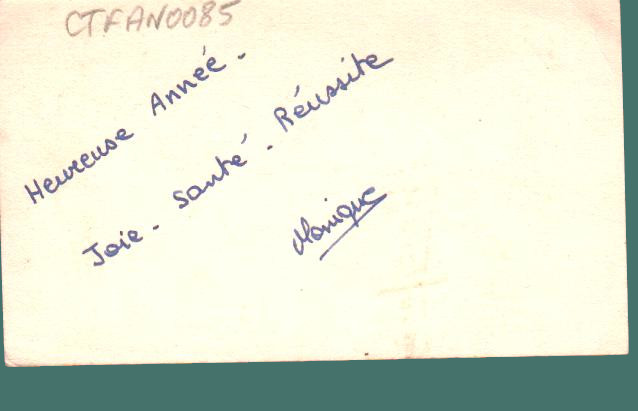 CTFAN0085
Heureuse Année.
Joie. Santé. Réussite
Monique